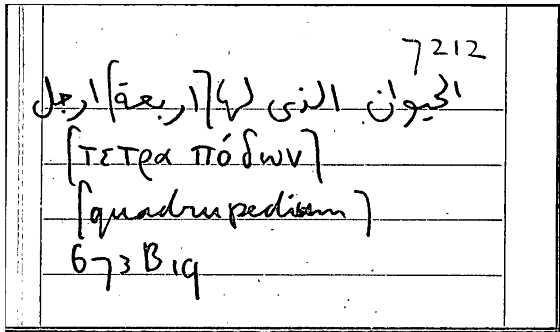 7212
الحيوان الذى لها [اربعة] ارجل
[τετρα πόδων]
[quadrupedium]
673 B 19